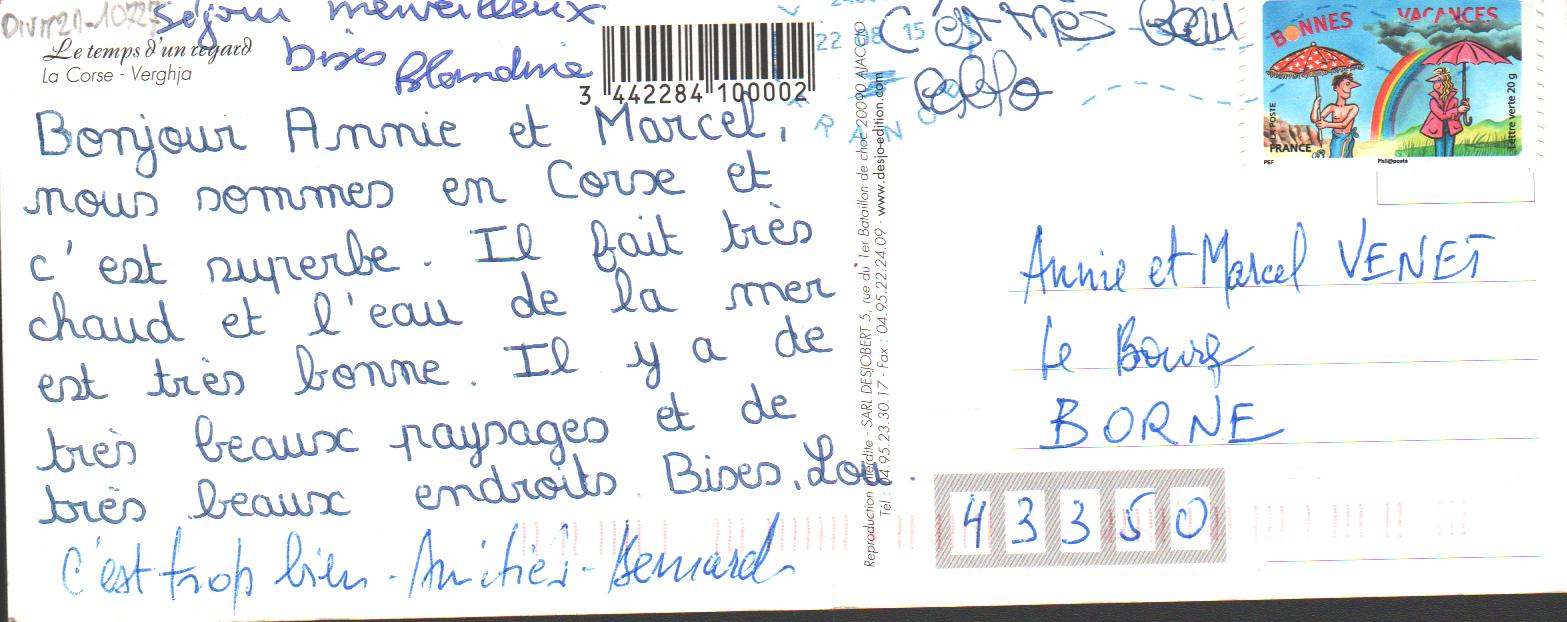 Séjour merveilleux
Bises
Blandine
Le temps d'un regard
La Corse - Verghja
3 442284 100002
Bonjour Annie et Marcel,
nous sommes en Corse et
c'est superbe. Il fait très
chaud et l'eau de la mer
est très bonne. Il y a de
très beaux paysages et de
très beaux endroits. Bises, Lou.
C'est trop bien - Amitiés - Bernard
Reproduction interdite - SARL DESJOBERT 5, rue du 1er Bataillon de choc 20090 AJACCIO
Tél : 04.95.23.30.17 - Fax : 04.95.22.24.09 - www.desjo-edition.com
22 08 15
C'est très Beau
BONNES VACANCES
LA POSTE
FRANCE
Lettre verte 20 g
PEF
Phil@poste
Annie et Marcel VENET
Le Bourg
BORNE
43350